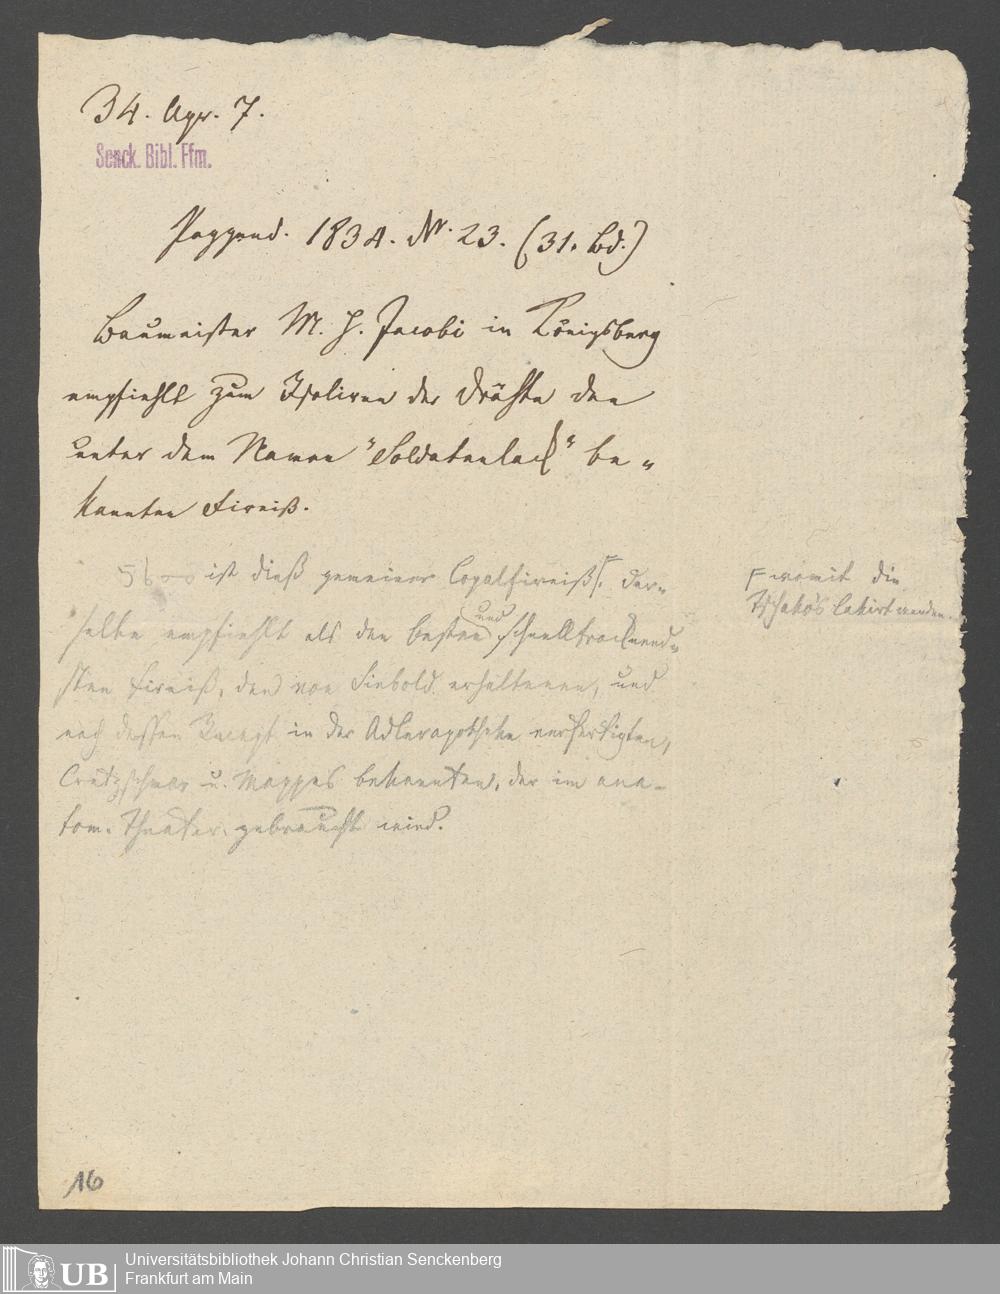 34. Apr. 7.
Senck. Bibl. Ffm.
Poggend. 1834. Nr. 23. (31. Bd.)
Baumeister M. H. Jacobi in Königsberg
empfiehlt zum Isoliren der Drähte den
unter dem Namen "Soldatenlack" be„
kannten Firniß.
ist dieß gemeiner Copalfirniß F. Der„
selbe empfiehlt als den besten und schnelltrocknend„
sten Firniß, den von Siebold erhaltenen, und
nach dessen Recept in der Adlerapotheke verfertigten,
Cretzschmar u. Mappes bekannten, der im ana„
tom. Theater gebraucht wird.
F womit die
Tschako's lakirt werden.
16
UB
Universitätsbibliothek Johann Christian Senckenberg
Frankfurt am Main